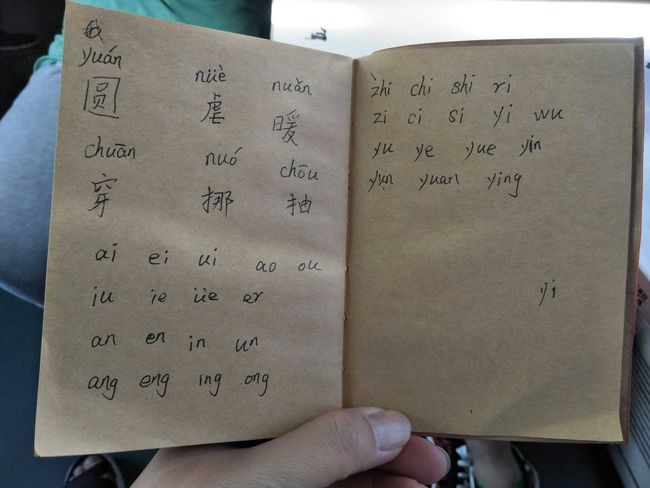 yuán nüè nuǎn
圆 虐 暖
chuān nuó chōu
穿 挪 抽
ai ei ui ao ou
iu ie üe er
an en in un
ang eng ing ong
zhi chi shi ri
zi ci si yi wu
yu ye yue yin
yun yuan ying
yi